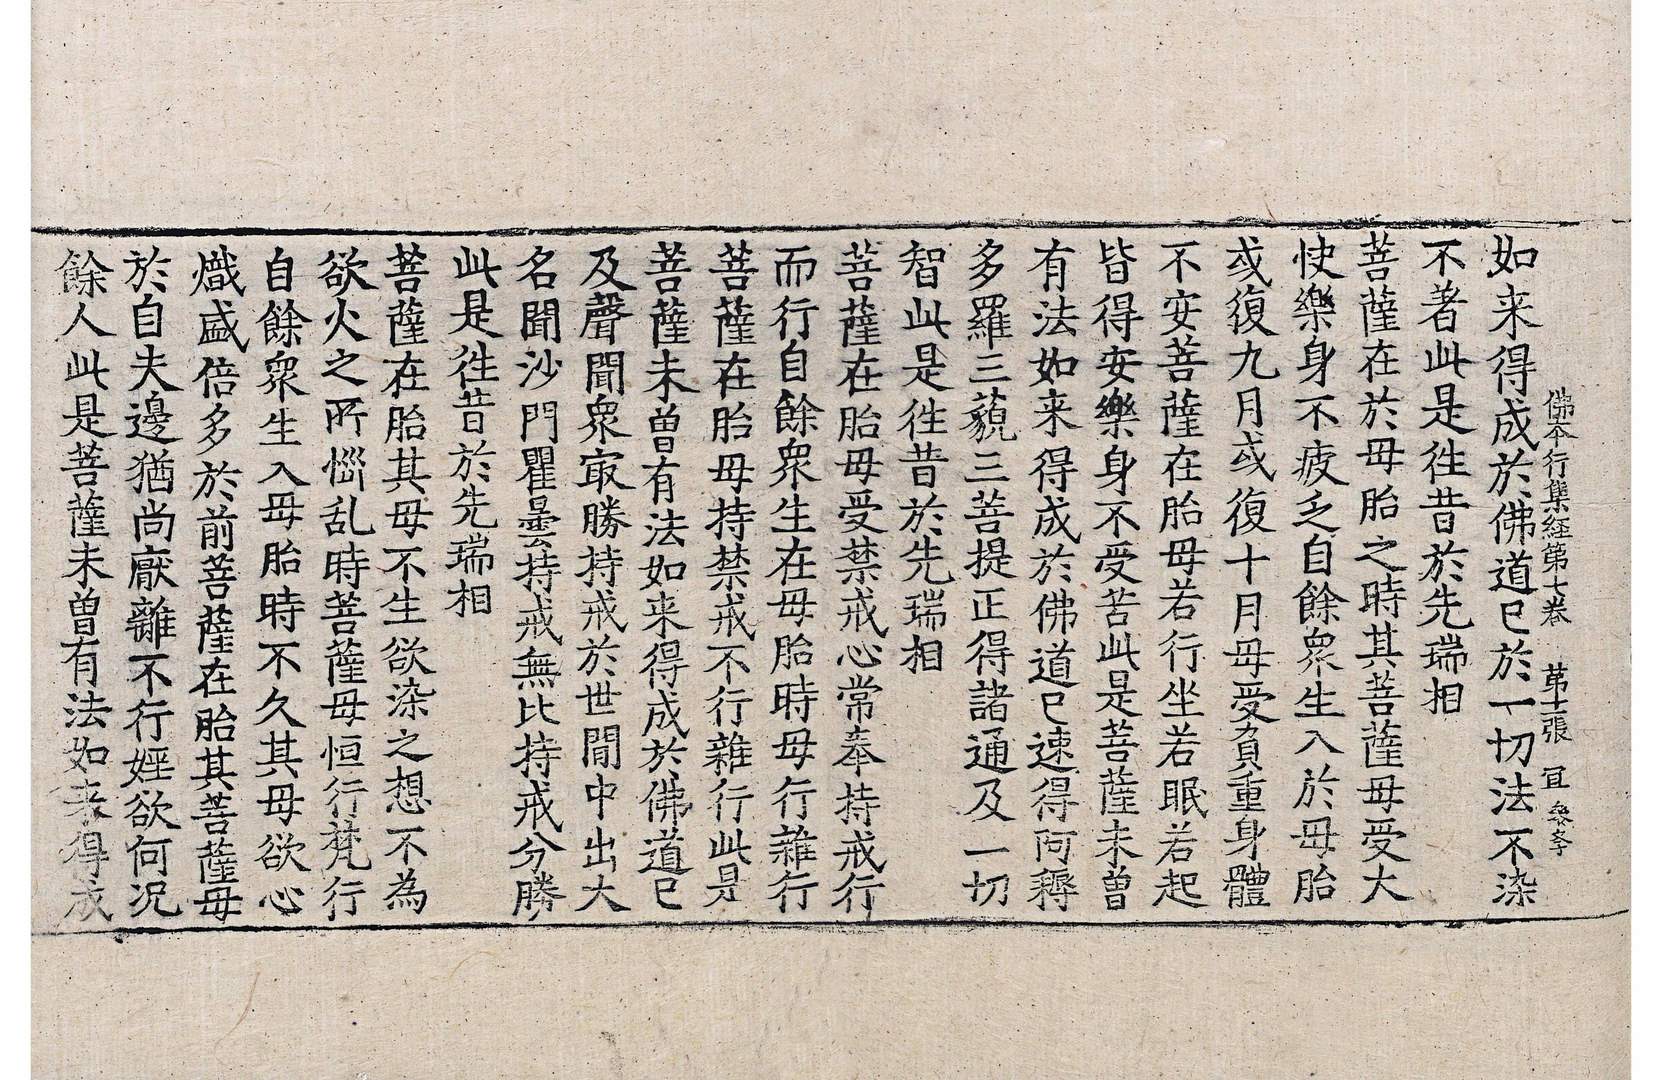 佛夲行集經第七卷 苐十一張 冝
如来得成於佛道已於一切法不染
不著此是徃昔於先瑞相
菩薩在於母胎之時其菩薩母受大
快樂身不疲乏自餘衆生入於母胎
或復九月或復十月母受負重身體
不安菩薩在胎母若行坐若眠若起
皆得安樂身不受苦此是菩薩未曽
有法如来得成於佛道已速得阿耨
多羅三藐三菩提正得諸通及一切
智此是徃昔於先瑞相
菩薩在胎母受禁戒心常奉持戒行
而行自餘衆生在母胎時母行雜行
菩薩在胎母持禁戒不行雜行此是
菩薩未曽有法如来得成於佛道已
及聲聞衆㝡勝持戒於世間中出大
名聞沙門瞿曇持戒無比持戒分勝
此是徃昔於先瑞相
菩薩在胎其母不生欲染之想不為
欲火之所惱乱時菩薩母恒行梵行
自餘衆生入母胎時不久其母欲心
熾盛倍多於前菩薩在胎其菩薩母
於自夫邊猶尚厭離不行婬欲何况
餘人此是菩薩未曽有法如来得成